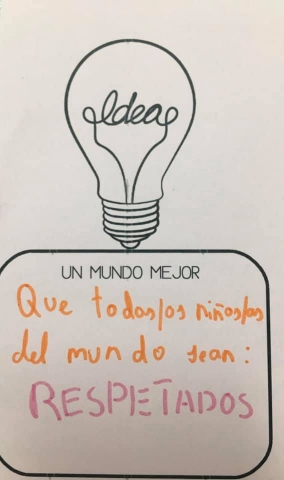 Idea
UN MUNDO MEJOR
Que todas/os niños/as
del mundo sean:
RESPETADOS